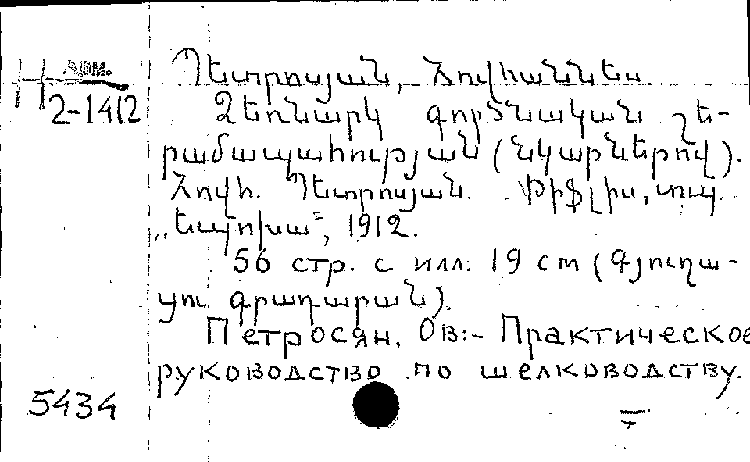 Арм.
Н
2-1412
Պետրոսյան, Հովհաննես
Ձեռնարկ գործնական շե-
րամապահության (նկարներով).
Հովհ. Պետրոսյան. Թիֆլիս, տպ.
„Եպոխա“, 1912.
56 стр. с илл. 19 см (Գյուղա-
կան գրադարան).
Петросян, Ов:- Практическое
руководство по шелководству.
5434